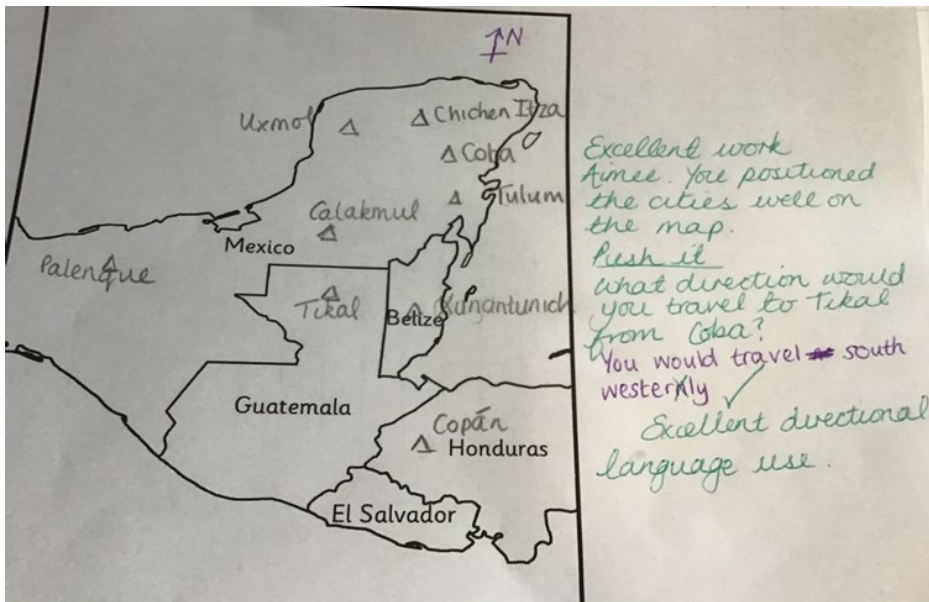 N
Uxmal
Chichen Itza
Coba
Tulum
Calakmul
Mexico
Palenque
Tikal
Belize
Xunantunich
Guatemala
Copán
Honduras
El Salvador
Excellent work
Aimee. You positioned
the cities well on
the map.
Push it
What direction would
you travel to Tikal
from Coba?
You would travel south
westerly
Excellent directional
language use.